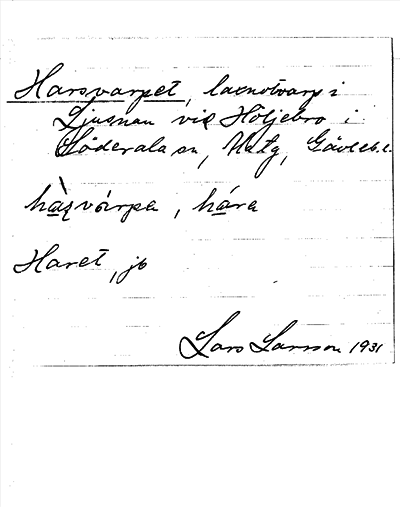 Harsvarpet, laxnotvarp i
Ljusnan vid Höljebro i
Söderala sn, Hälsg, Gävleb. l.
hàs̩várpa, hára
Haret, jb
Lars Larsson 1931